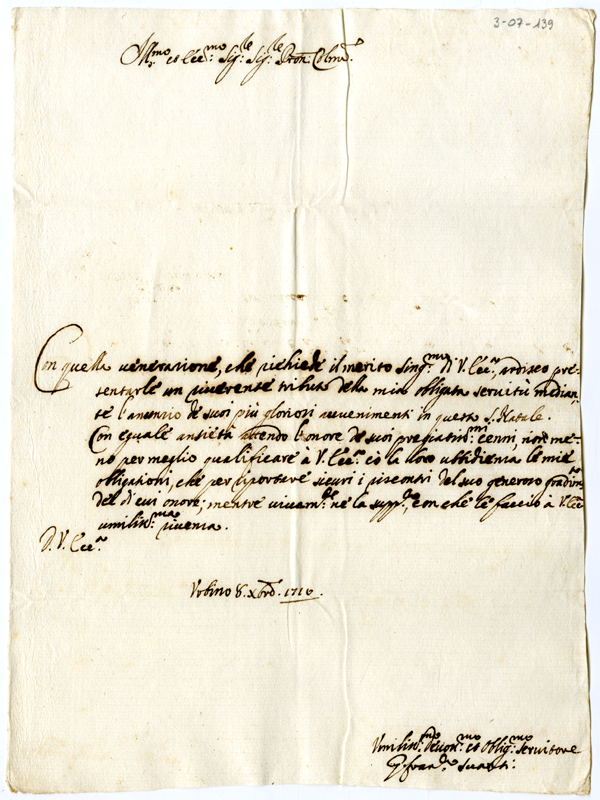 3-07-139
Ill.mo et Ecc.mo Sig.re Sig.re Pron. Colmo.
Con quella venerazione, che richiede il merito sing.mo di V. Ecc.a, ardisco pre-
sentarle un riverente tributo della mia obligata servitù median-
te l'annunzio de suoi più gloriosi avvenimenti in questo S. Natale.
Con eguale ansietà attendo l'onore de suoi pregiatiss.mi cenni, non me-
no per meglio qualificare à V. Ecc.a cõ la loro ubbidienza le mie
obligationi, che per riportare sicuri i riscontri del suo generoso gradim.to
del di cui onore; mentre vivam.te ne la supp.co con che le faccio à V. Ecc.a
umiliss.ma riverenza.
D. V. Ecc.a
Urbino 8. Xbre. 1716.
Umiliss.mo Devot.mo et Oblig.mo Servitore